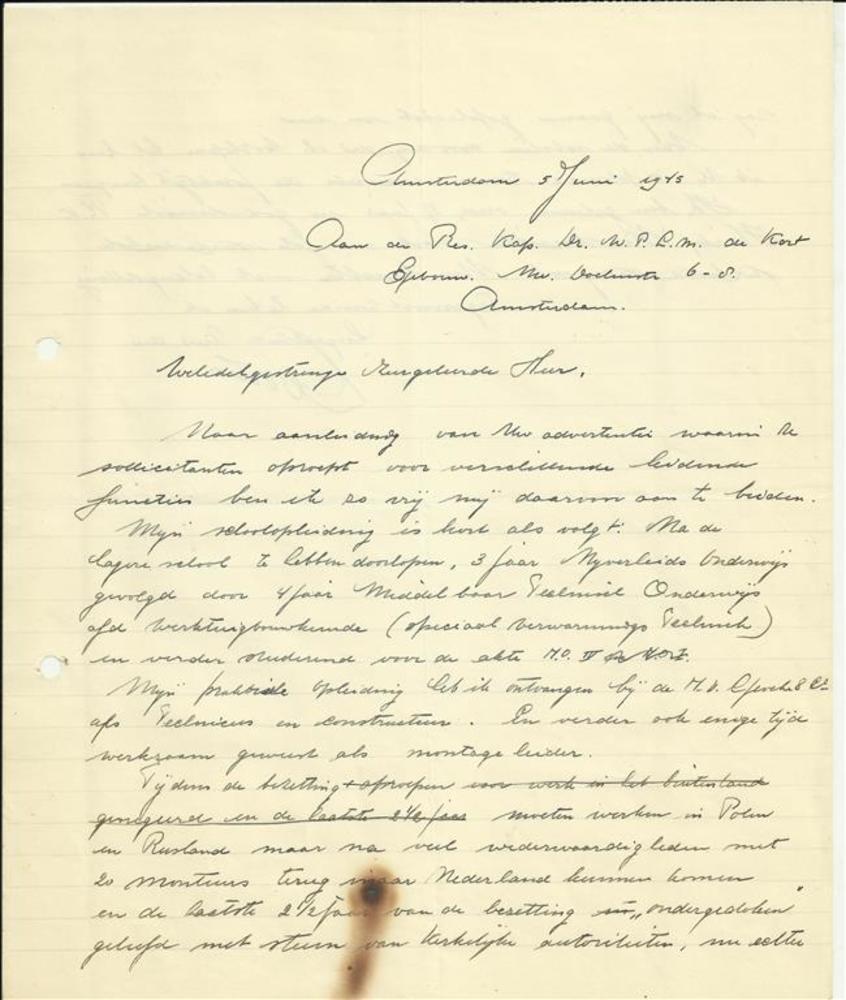 Amsterdam 5 Juni 1945
Aan de Res. Kap. Dr. W.P.L.M. de Kort
Gebouw. Nw. Doelenstr 6-8.
Amsterdam.
Weledelgestrenge Zeergeleerde Heer,
Naar aanleiding van Uw advertentie waarin U
sollicitanten oproept voor verschillende leidende
functies ben ik zo vrij mij daarvoor aan te bieden.
Mijn schoolopleiding is kort als volgt: Na de
lagere school te hebben doorlopen, 3 jaar Nijverheids Onderwijs
gevolgd door 4 jaar Middelbaar Technisch Onderwijs
afd Werktuigbouwkunde (speciaal verwarmings Techniek)
en verder studerend voor de akte M.O. IV
Mijn praktische opleiding heb ik ontvangen bij de N.V. & Co
als Technicus en constructeur. En verder ook enige tijd
werkzaam geweest als montage leider.
Tijdens de bezetting oproepen voor werk in het buitenland
genegeerd en de laatste 2 1/2 jaar moeten werken in Polen
en Rusland maar na veel wederwaardigheden met
20 monteurs terug naar Nederland kunnen komen
en de laatste 2 1/2 jaar van de bezetting "ondergedoken"
geleefd met steun van Kerkelijke autoriteiten, nu echter